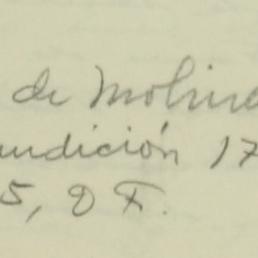 de Molin
undición 17
5, D F.